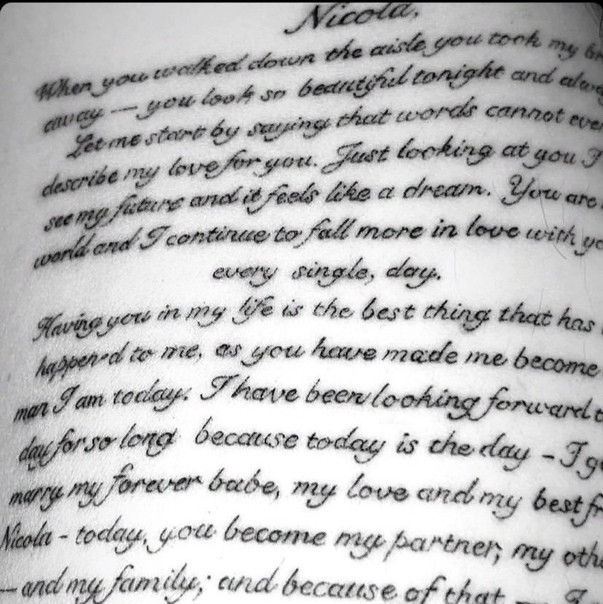 Nicola,
When you walked down the aisle you took my
away — you look so beautiful tonight and
Let me start by saying that words cannot
describe my love for you. Just looking at you I
see my future and it feels like a dream. You are
world and I continue to fall more in love with
every single, day.
Having you in my life is the best thing that has
happened to me, as you have made me become
man I am today. I have been looking forward
day for so long because today is the day - I
marry my forever babe, my love and my best
Nicola - today, you become my partner, my
— and my family; and because of that —